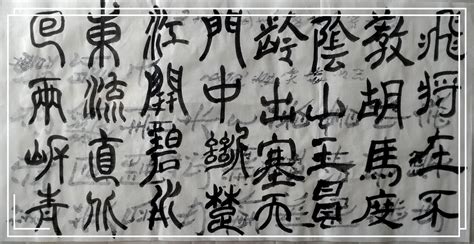 飛將在不
教胡馬度
陰山王昌
齡出塞天
門中斷楚
江開碧水
東流直北
回兩岸青